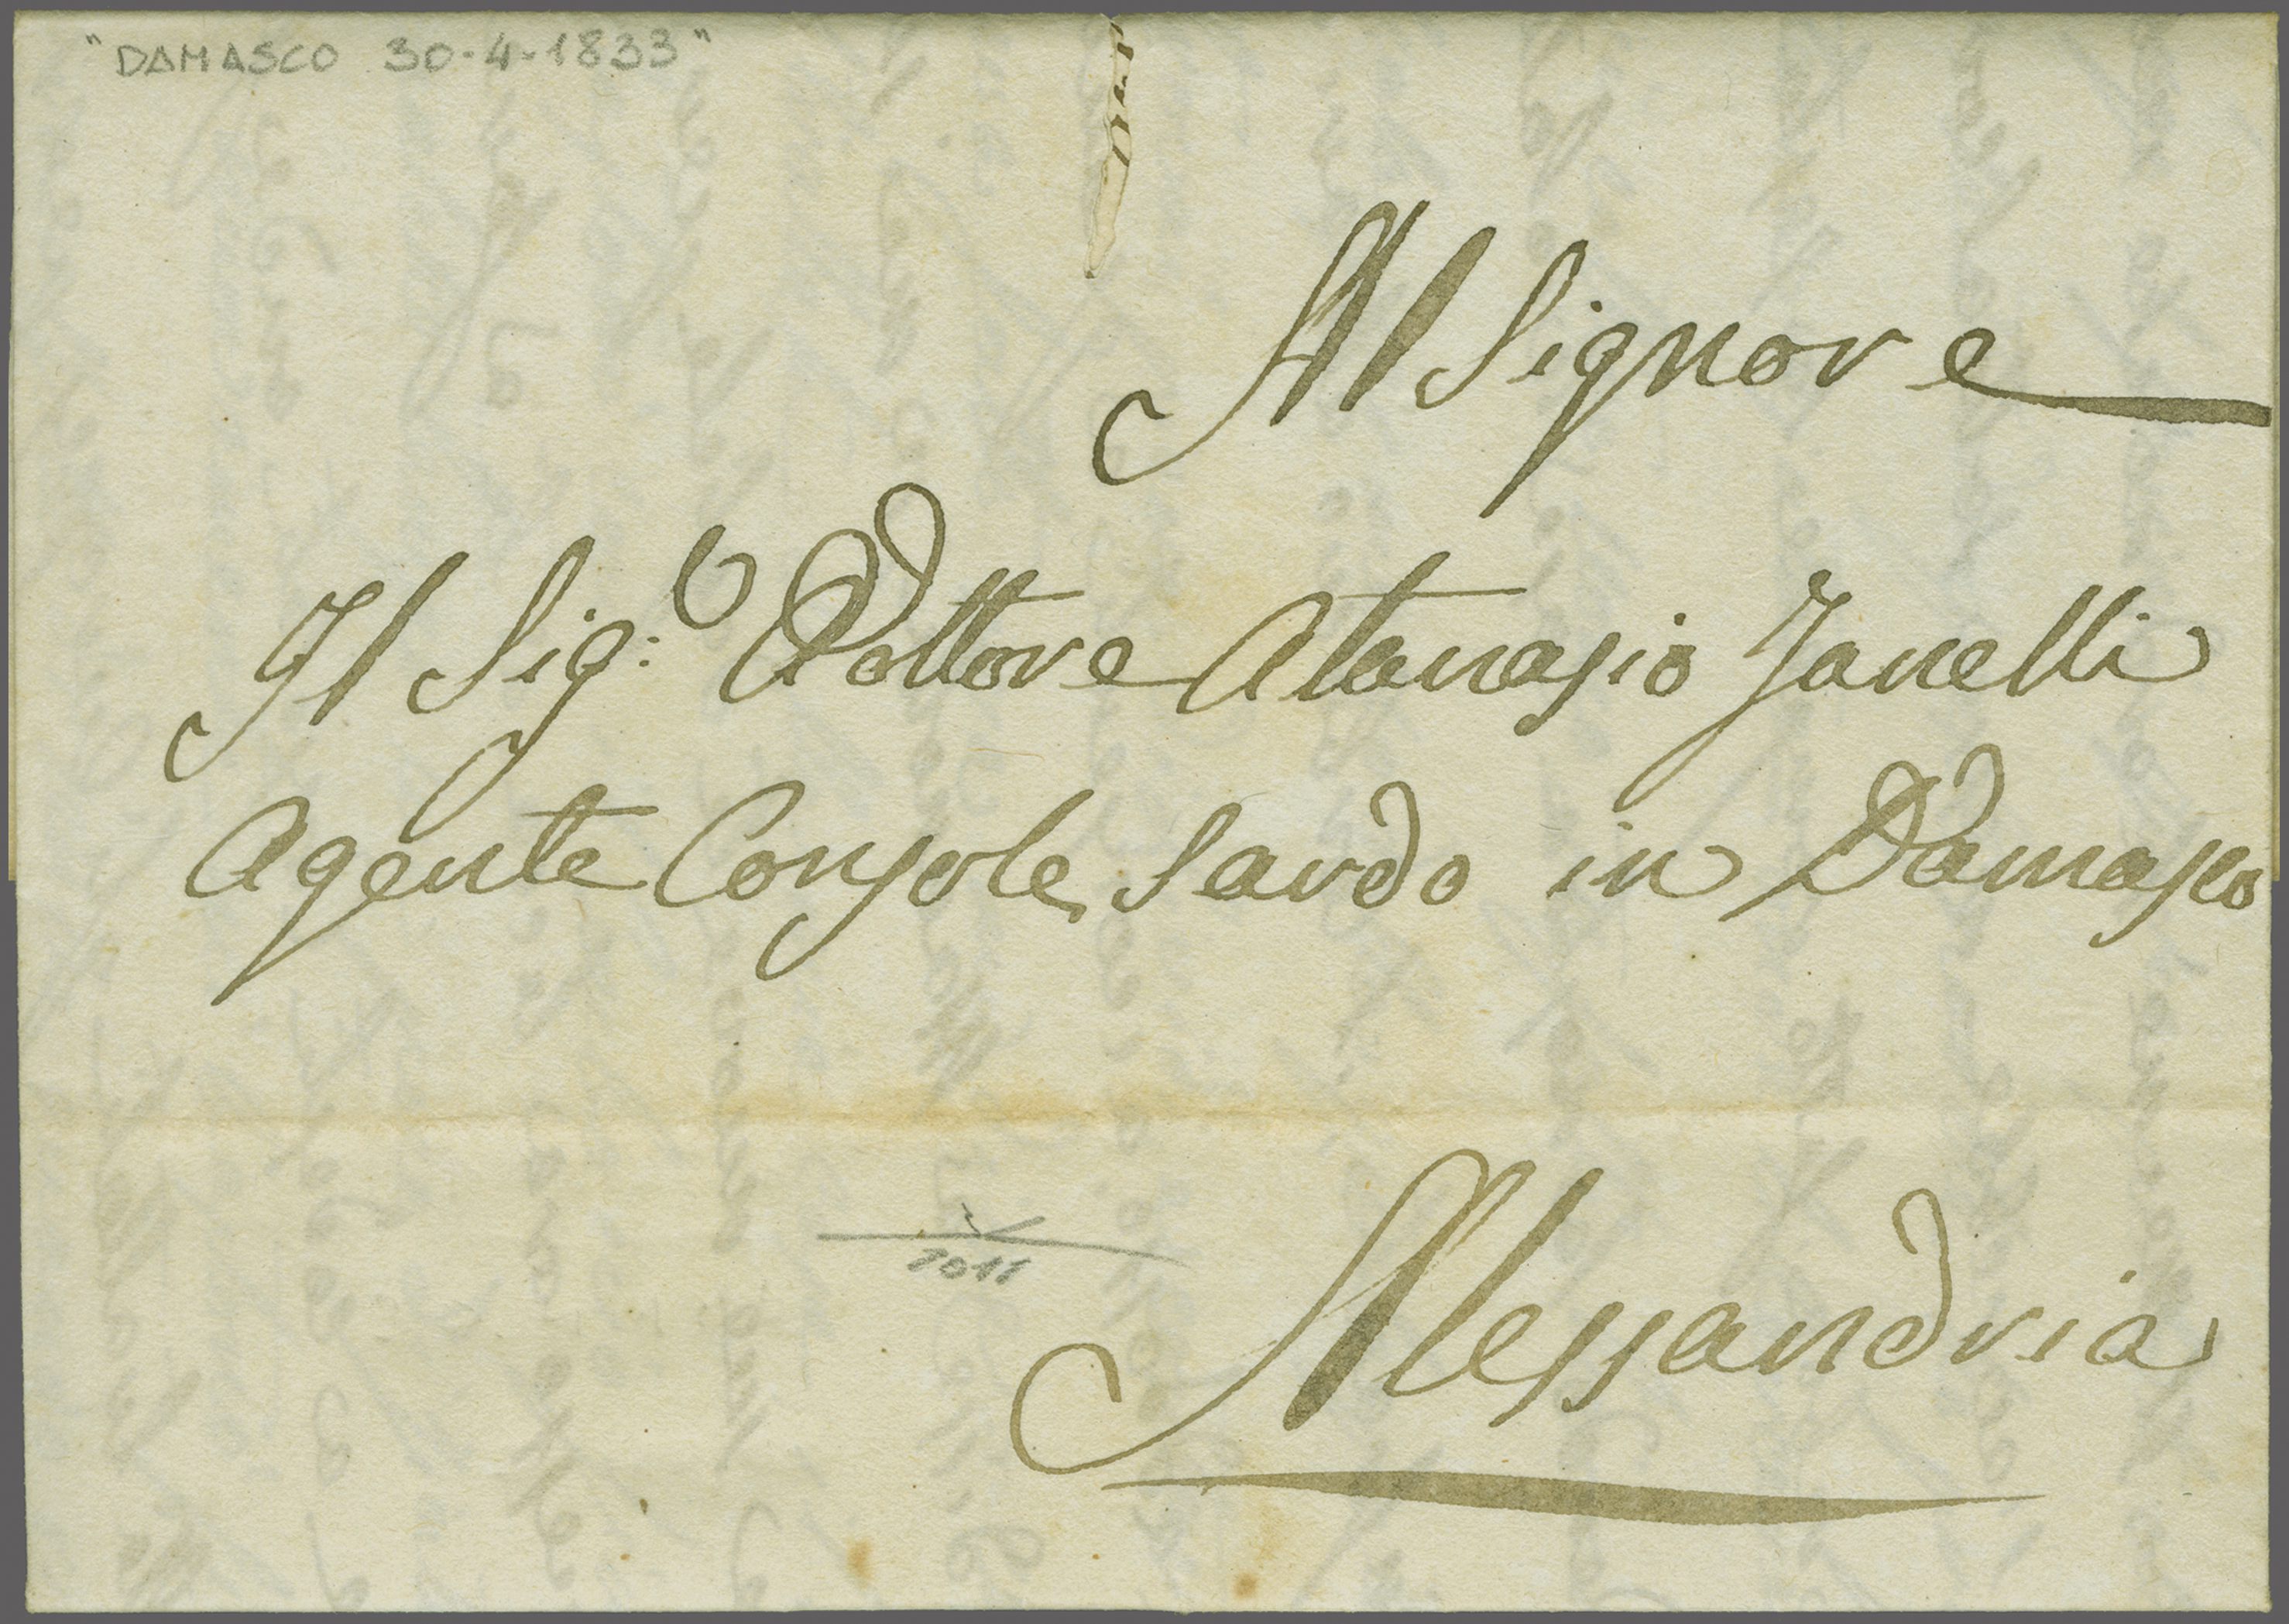 "DAMASCO 30-4-1833"
Al Signore
Il Sig.: Dottore Atanasio Janelli
Agente Console Sardo in Damasco
Alessandria